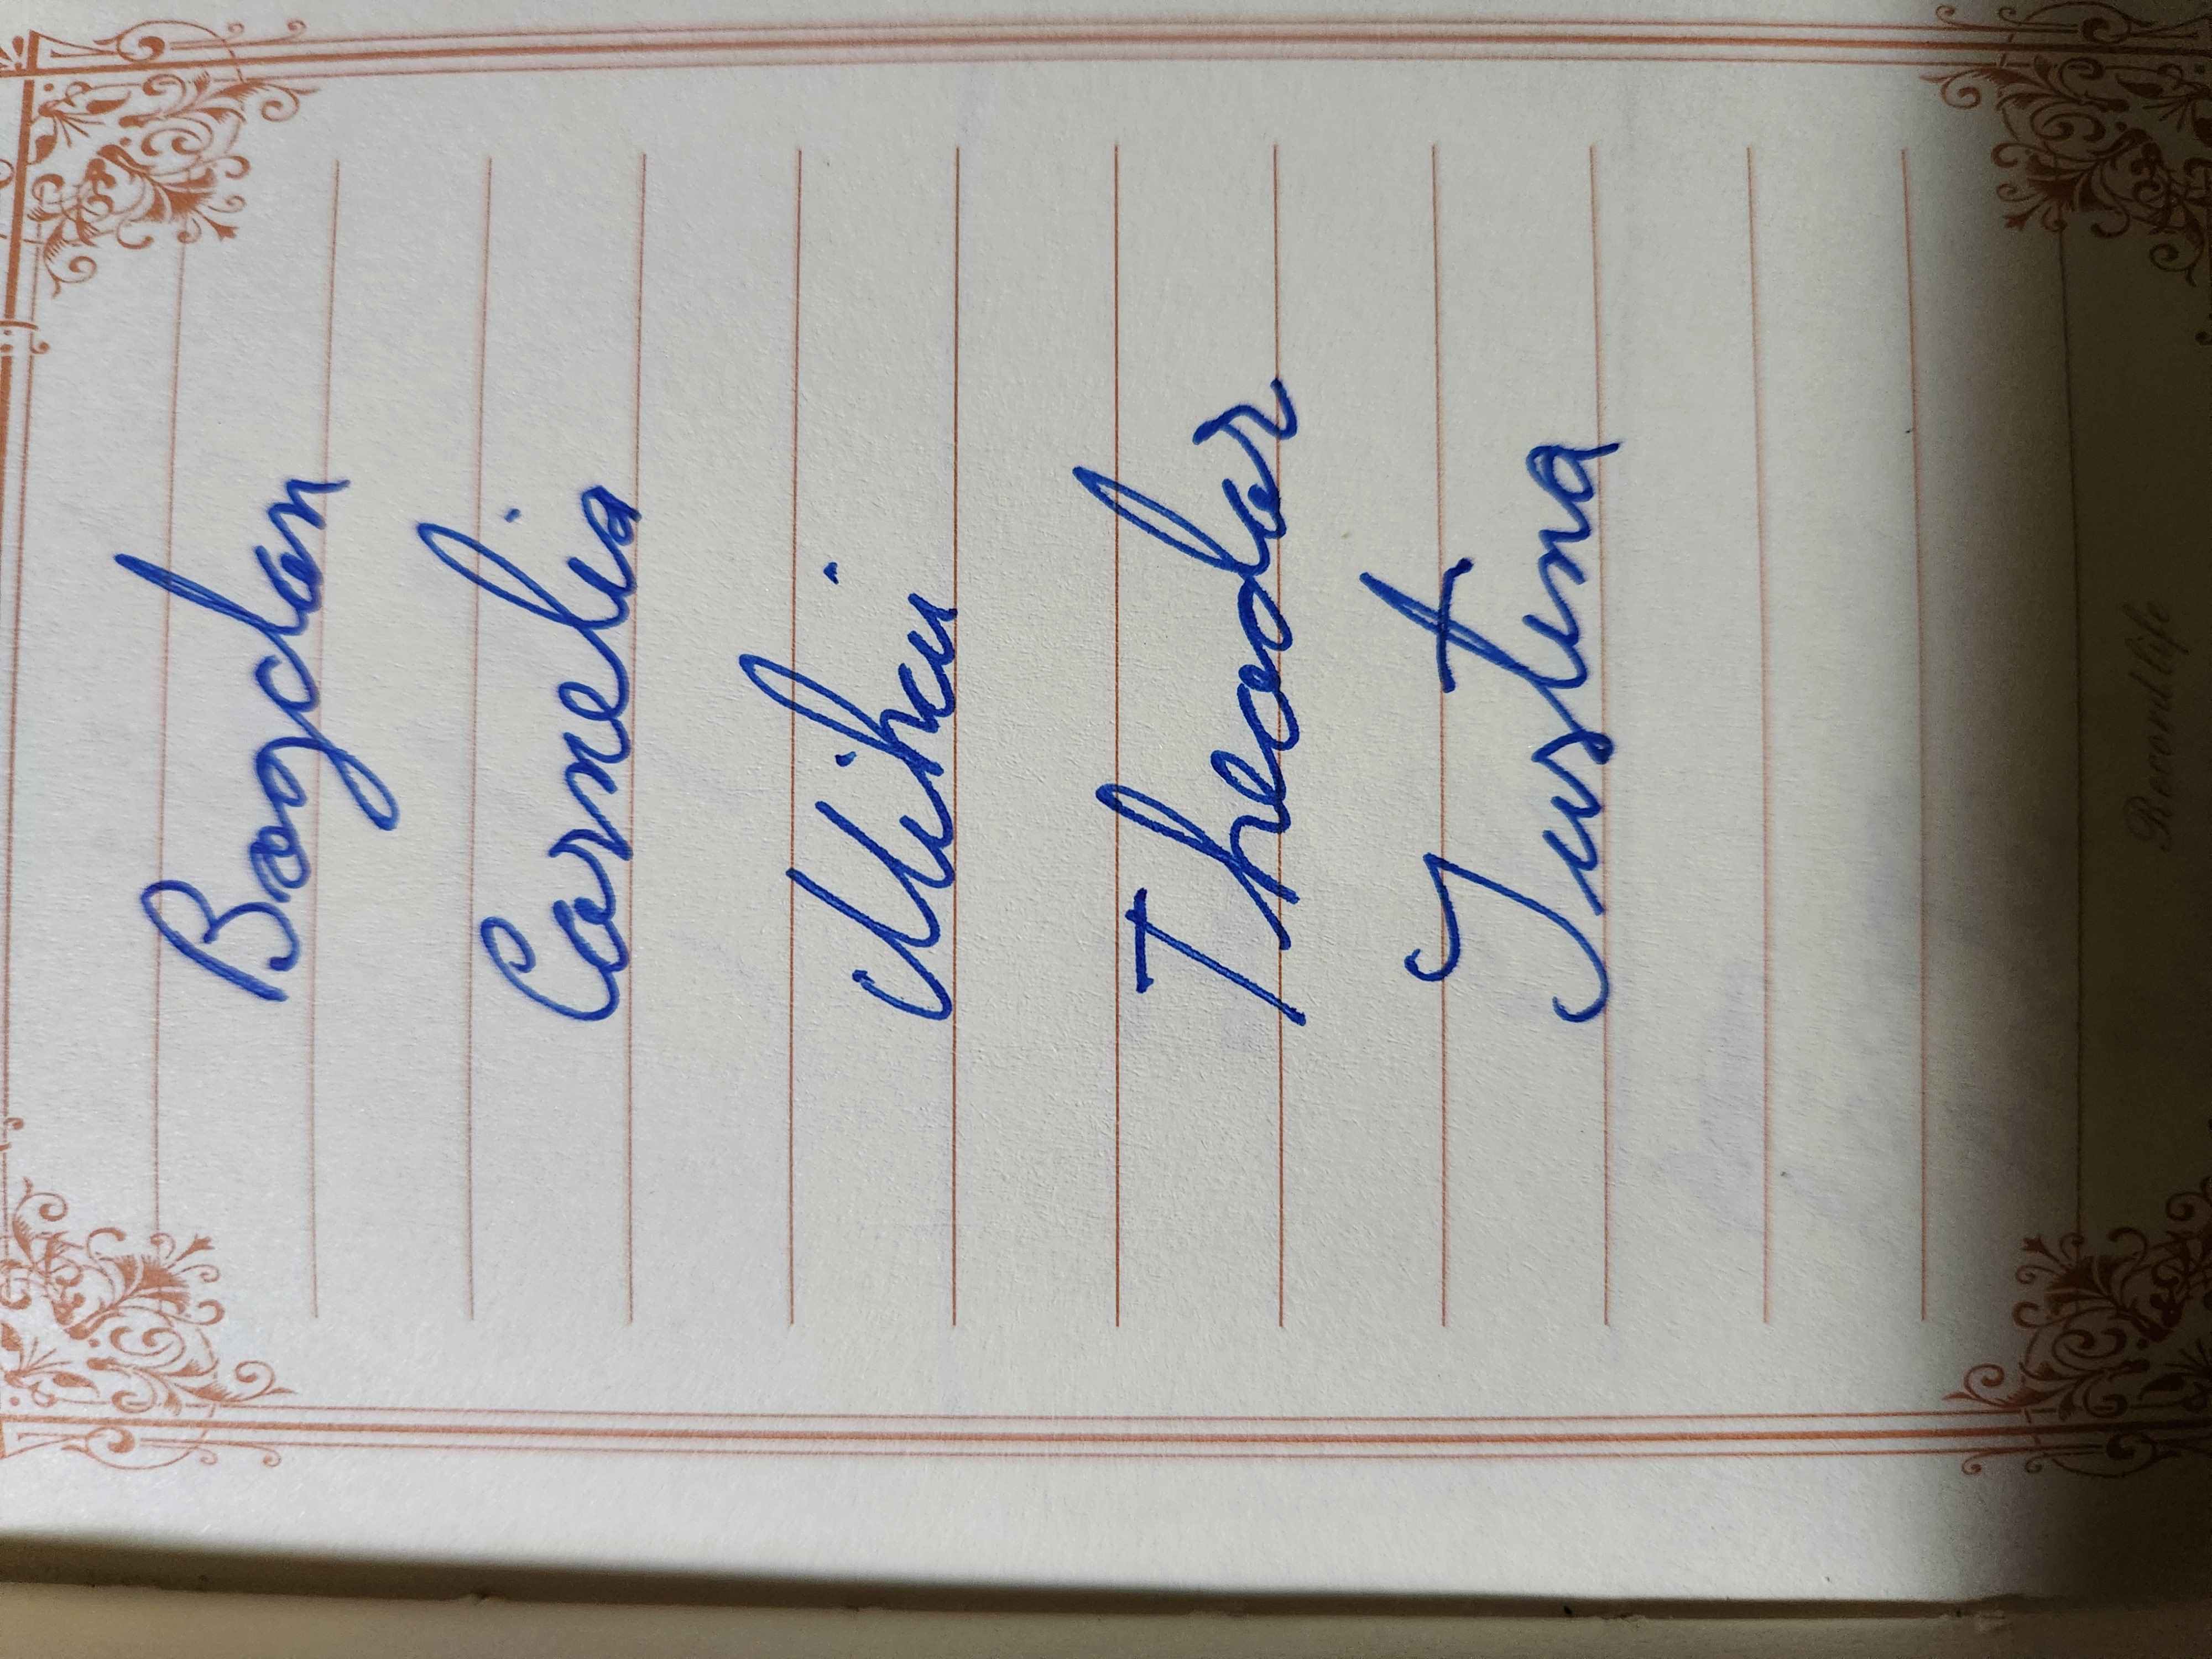 Bogdan
Cornelia
Mihai
Theodor
Iustina
Record life